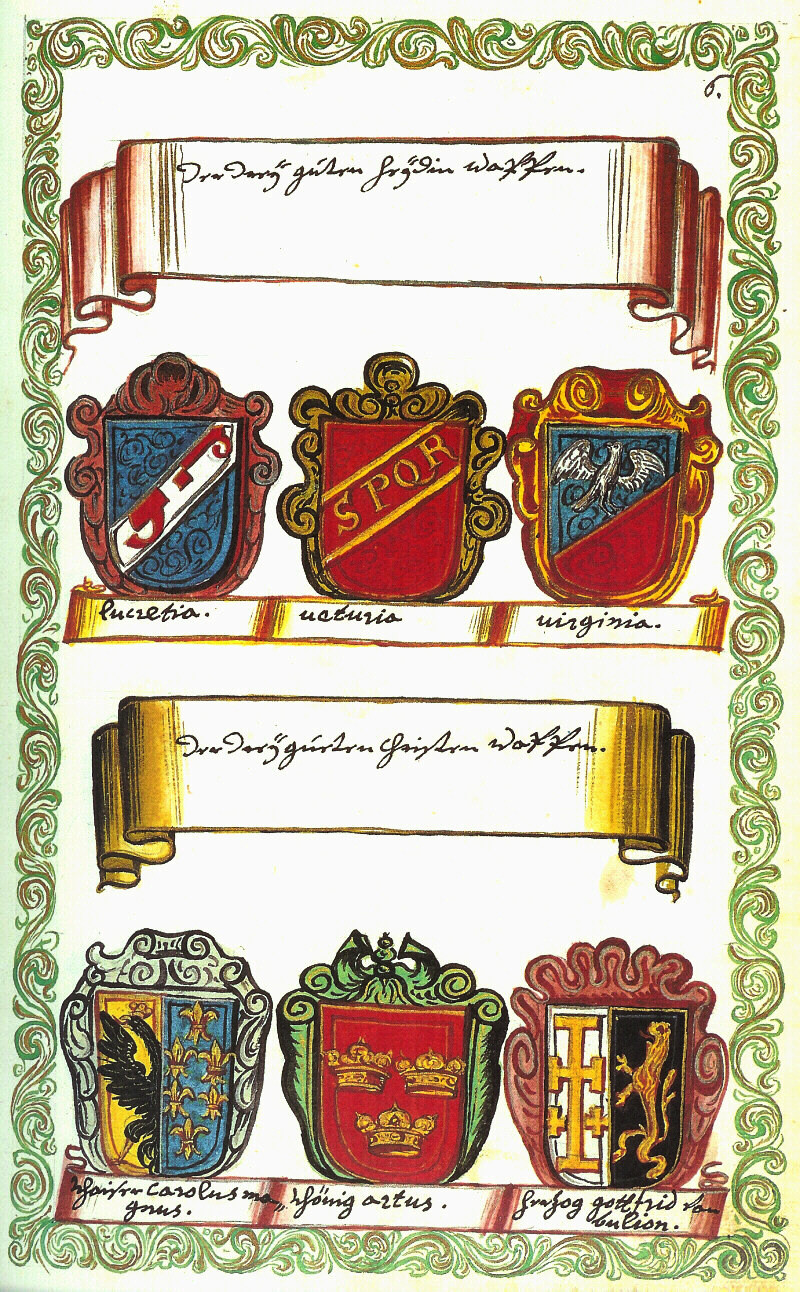 6.
Der Dreÿ gúten heÿdin waffen.
S P Q R
lucretia.
ueturia
virginia.
Der Dreÿ gúeten Christen waffen.
khaiser Carolus ma=
gnus.
khönig artus.
herzog gottfrid von
bulion.